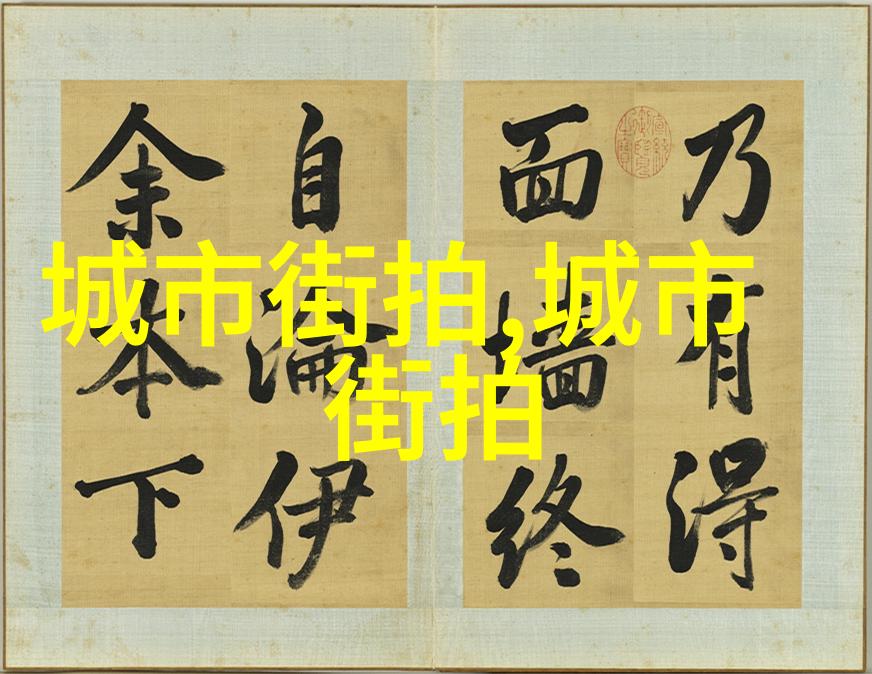 城市街拍,城市
街拍
乃有得
面墙終
自淪伊
余本下